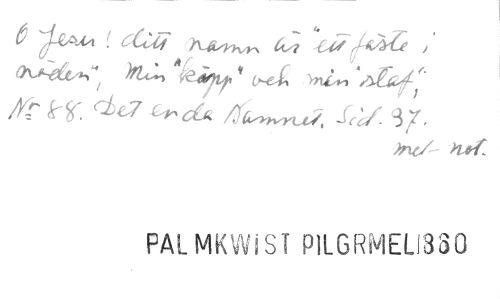 O Jesu! ditt namn är "ett fäste i
nöden", Min "käpp" och min "staf";
Nr 88. Det enda Namnet. Sid. 37.
mel- not.
PALMKWIST PILGRMEL1860